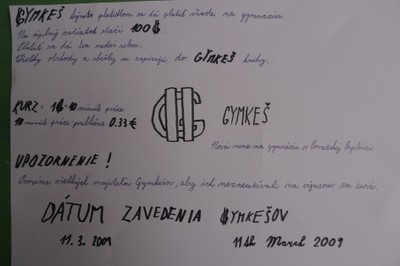 GYMKEŠ týmto platidlom sa dá platiť všade na gymnáziu.
Na úplný začiatok stačí 100
Platiť sa dá len medzi sebou.
Všetky obchody a služby sa zapisujú do GYMKEŠ knihy.
KURZ - 10 minút práce
10 minút práce približne 0.33 €
GYMKEŠ
Nová mena na gymnáziu v
UPOZORNENIE !
Prosíme všetkých majiteľov Gymkešov, aby ich nezneužívali na výmenu za eurá.
DÁTUM ZAVEDENIA GYMKEŠOV
11.3.2009
11th March 2009